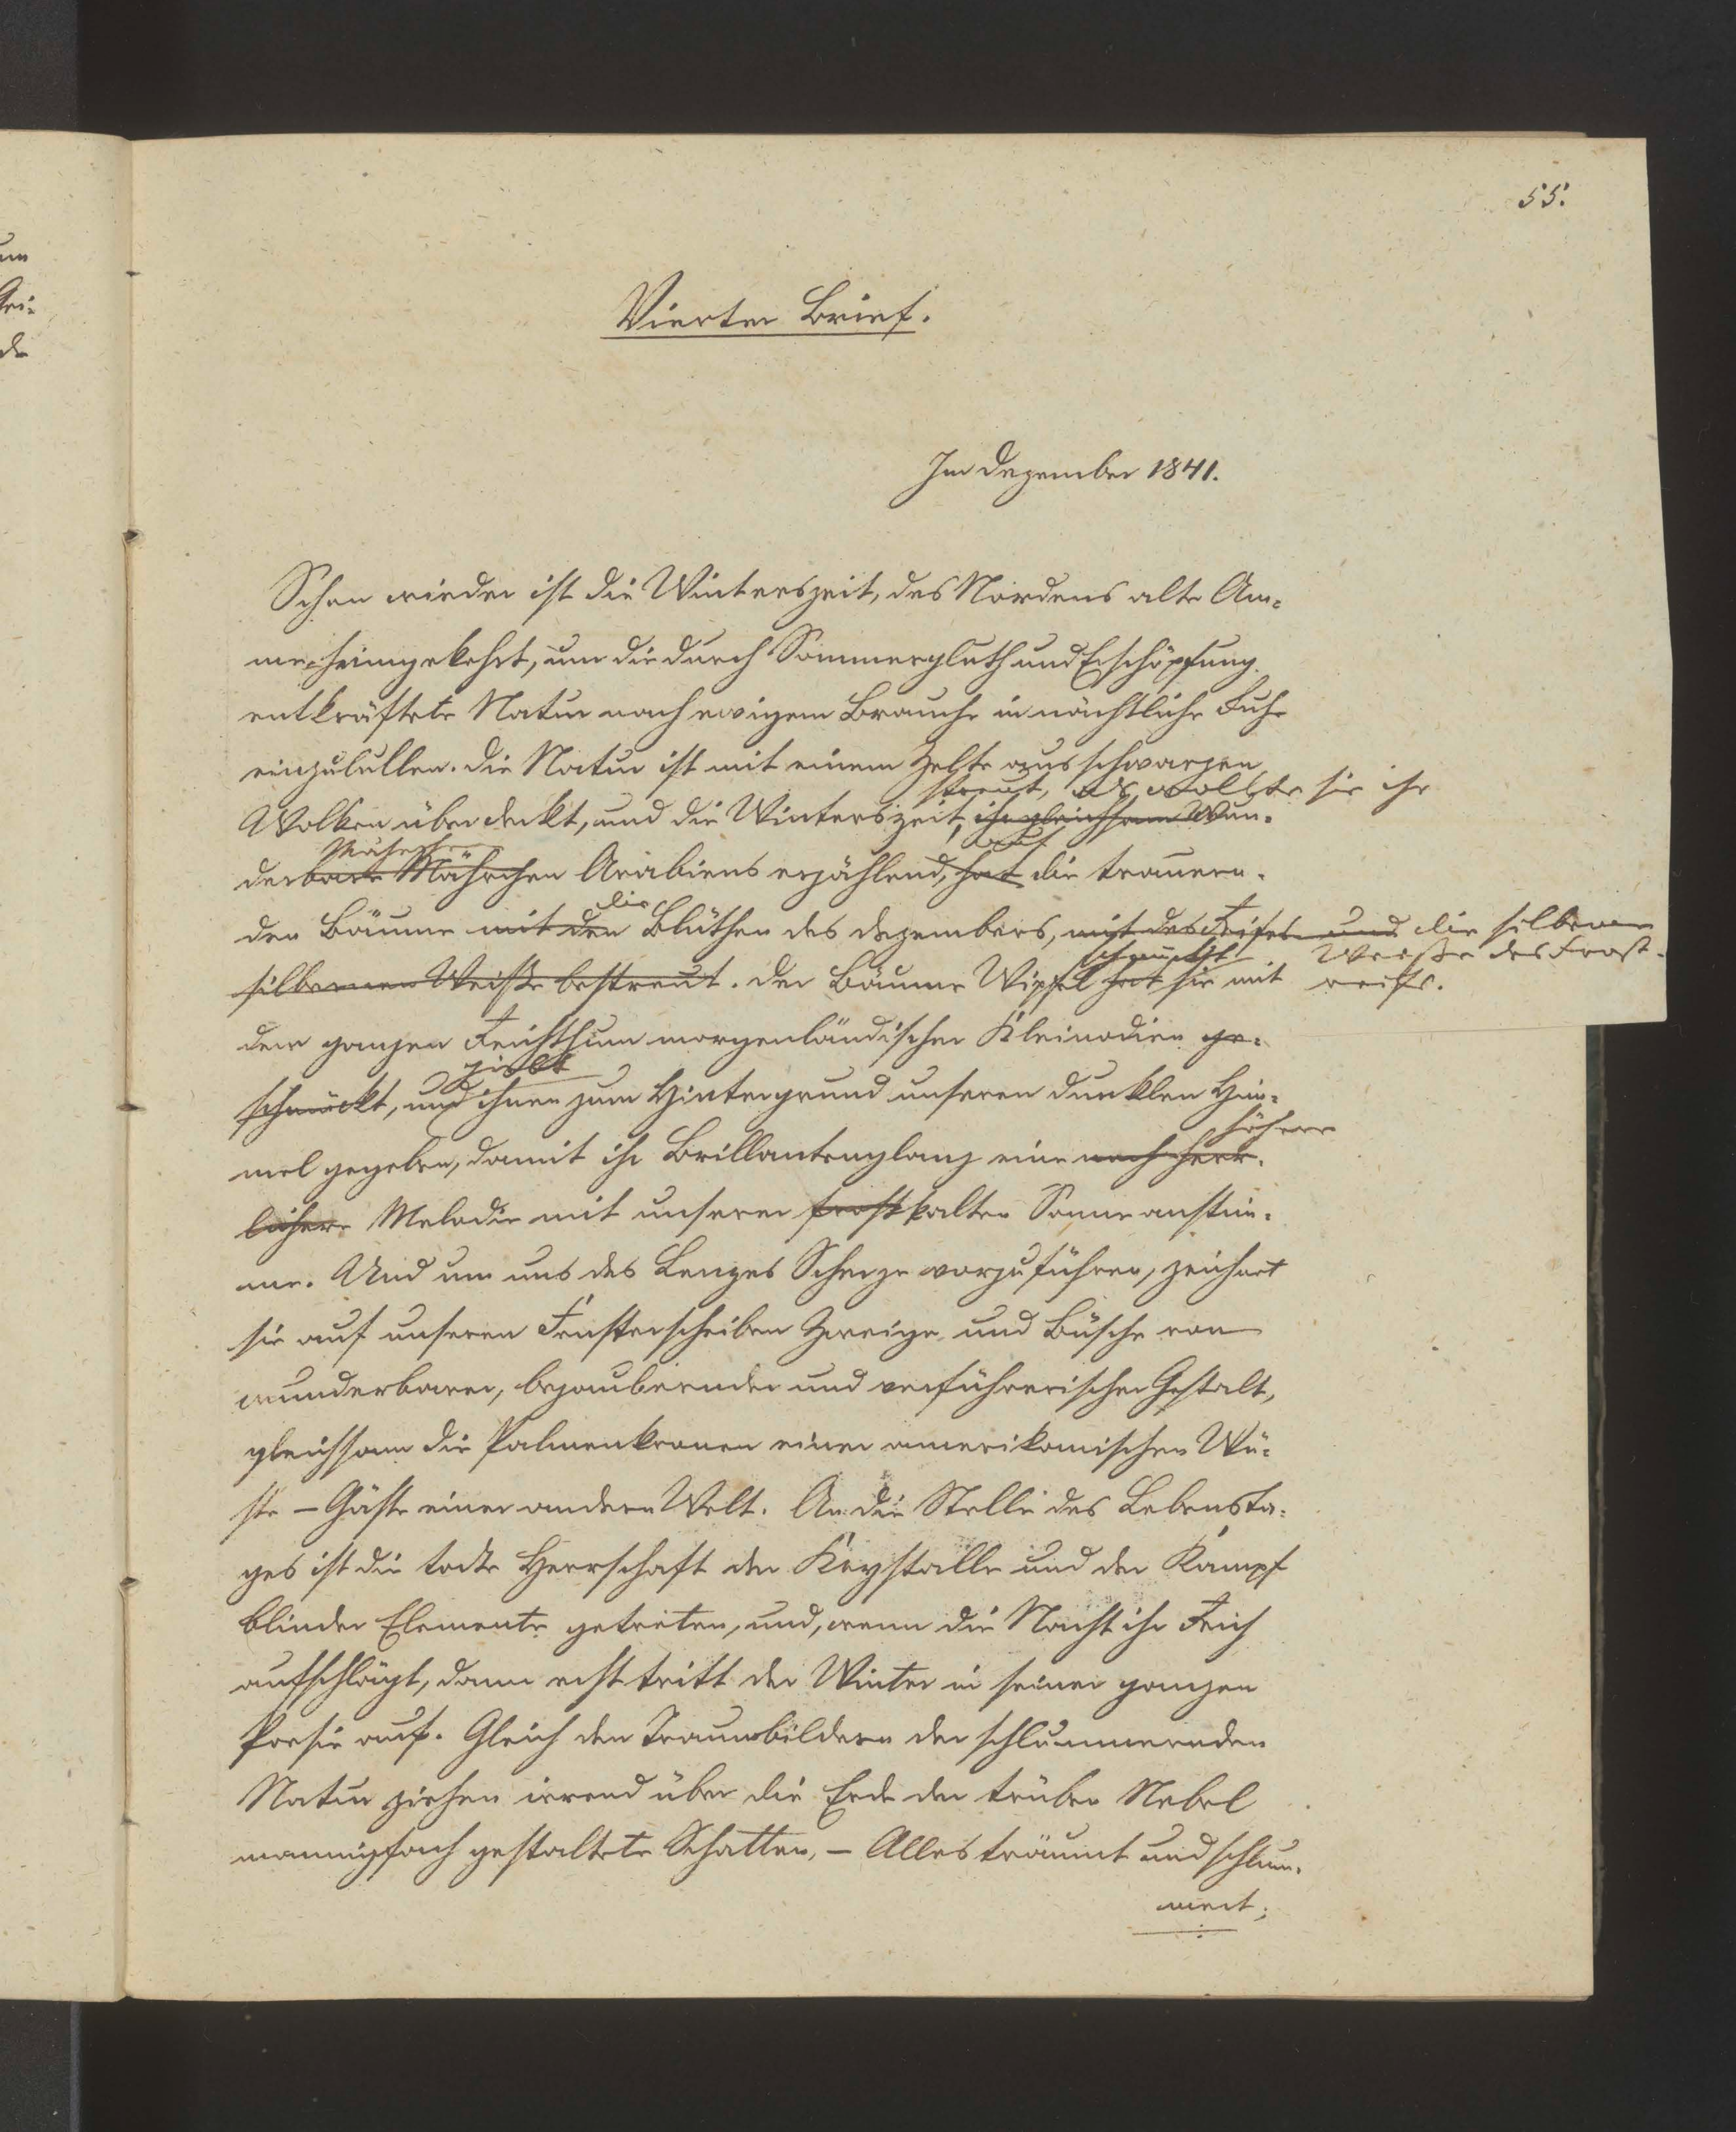 55.
Vierter Brief.
Im Dezember 1841.
Schon wieder ist die Winterszeit, des Nordens alte Am-
me, heimgekehrt, um die durch Sommergluth und Erschöpfung
entkräftete Natur nach ewigem Brauche in nächtliche Ruhe
einzulullen. Die Natur ist mit einem Zelte aus schwarzen
streut, als wollte sie ihr
Wolken überdeckt, und die Winterszeit, ihr gleichsam Wun-
Mährchen auf
derbare Mährchen Arabiens erzählend, hat die trauern-
die
den Bäume mit den Blüthen des Dezembers, mit des Reifes und die silberne
schmückt Weiße des Frost-
silbernen Weiße bestreut. Der Bäume Wipfel hat sie mit reifs.
dem ganzen Reichthum morgenländischer Kleinodien ge-
giebt
schmückt, und ihnen zum Hintergrund unseren dunklen Him-
höhere
mel gegeben, damit ihr Brillantenglanz eine noch herr-
lichere Melodie mit unserer frostkalten Sonne anstim-
me. Und um uns des Lenzes Scherze vorzuführen, zeichnet
sie auf unseren Fensterscheiben Zweige und Büsche von
wunderbarer, bezaubernder und verführerischer Gestalt,
gleichsam die Palmenkronen einer amerikanischen Wü-
ste – Gäste einer andern Welt. An die Stelle des Lebensta-
ges ist die todte Herrschaft der Krystalle und der Kampf
blinder Elemente getreten, und, wenn die Nacht ihr Reich
aufschlägt, dann erst tritt der Winter in seiner ganzen
Poesie auf. Gleich den Traumbildern der schlummernden
Natur ziehen irrend über die Erde der trüben Nebel
mannigfach gestaltete Schatten, – Alles träumt und schlum-
mert;